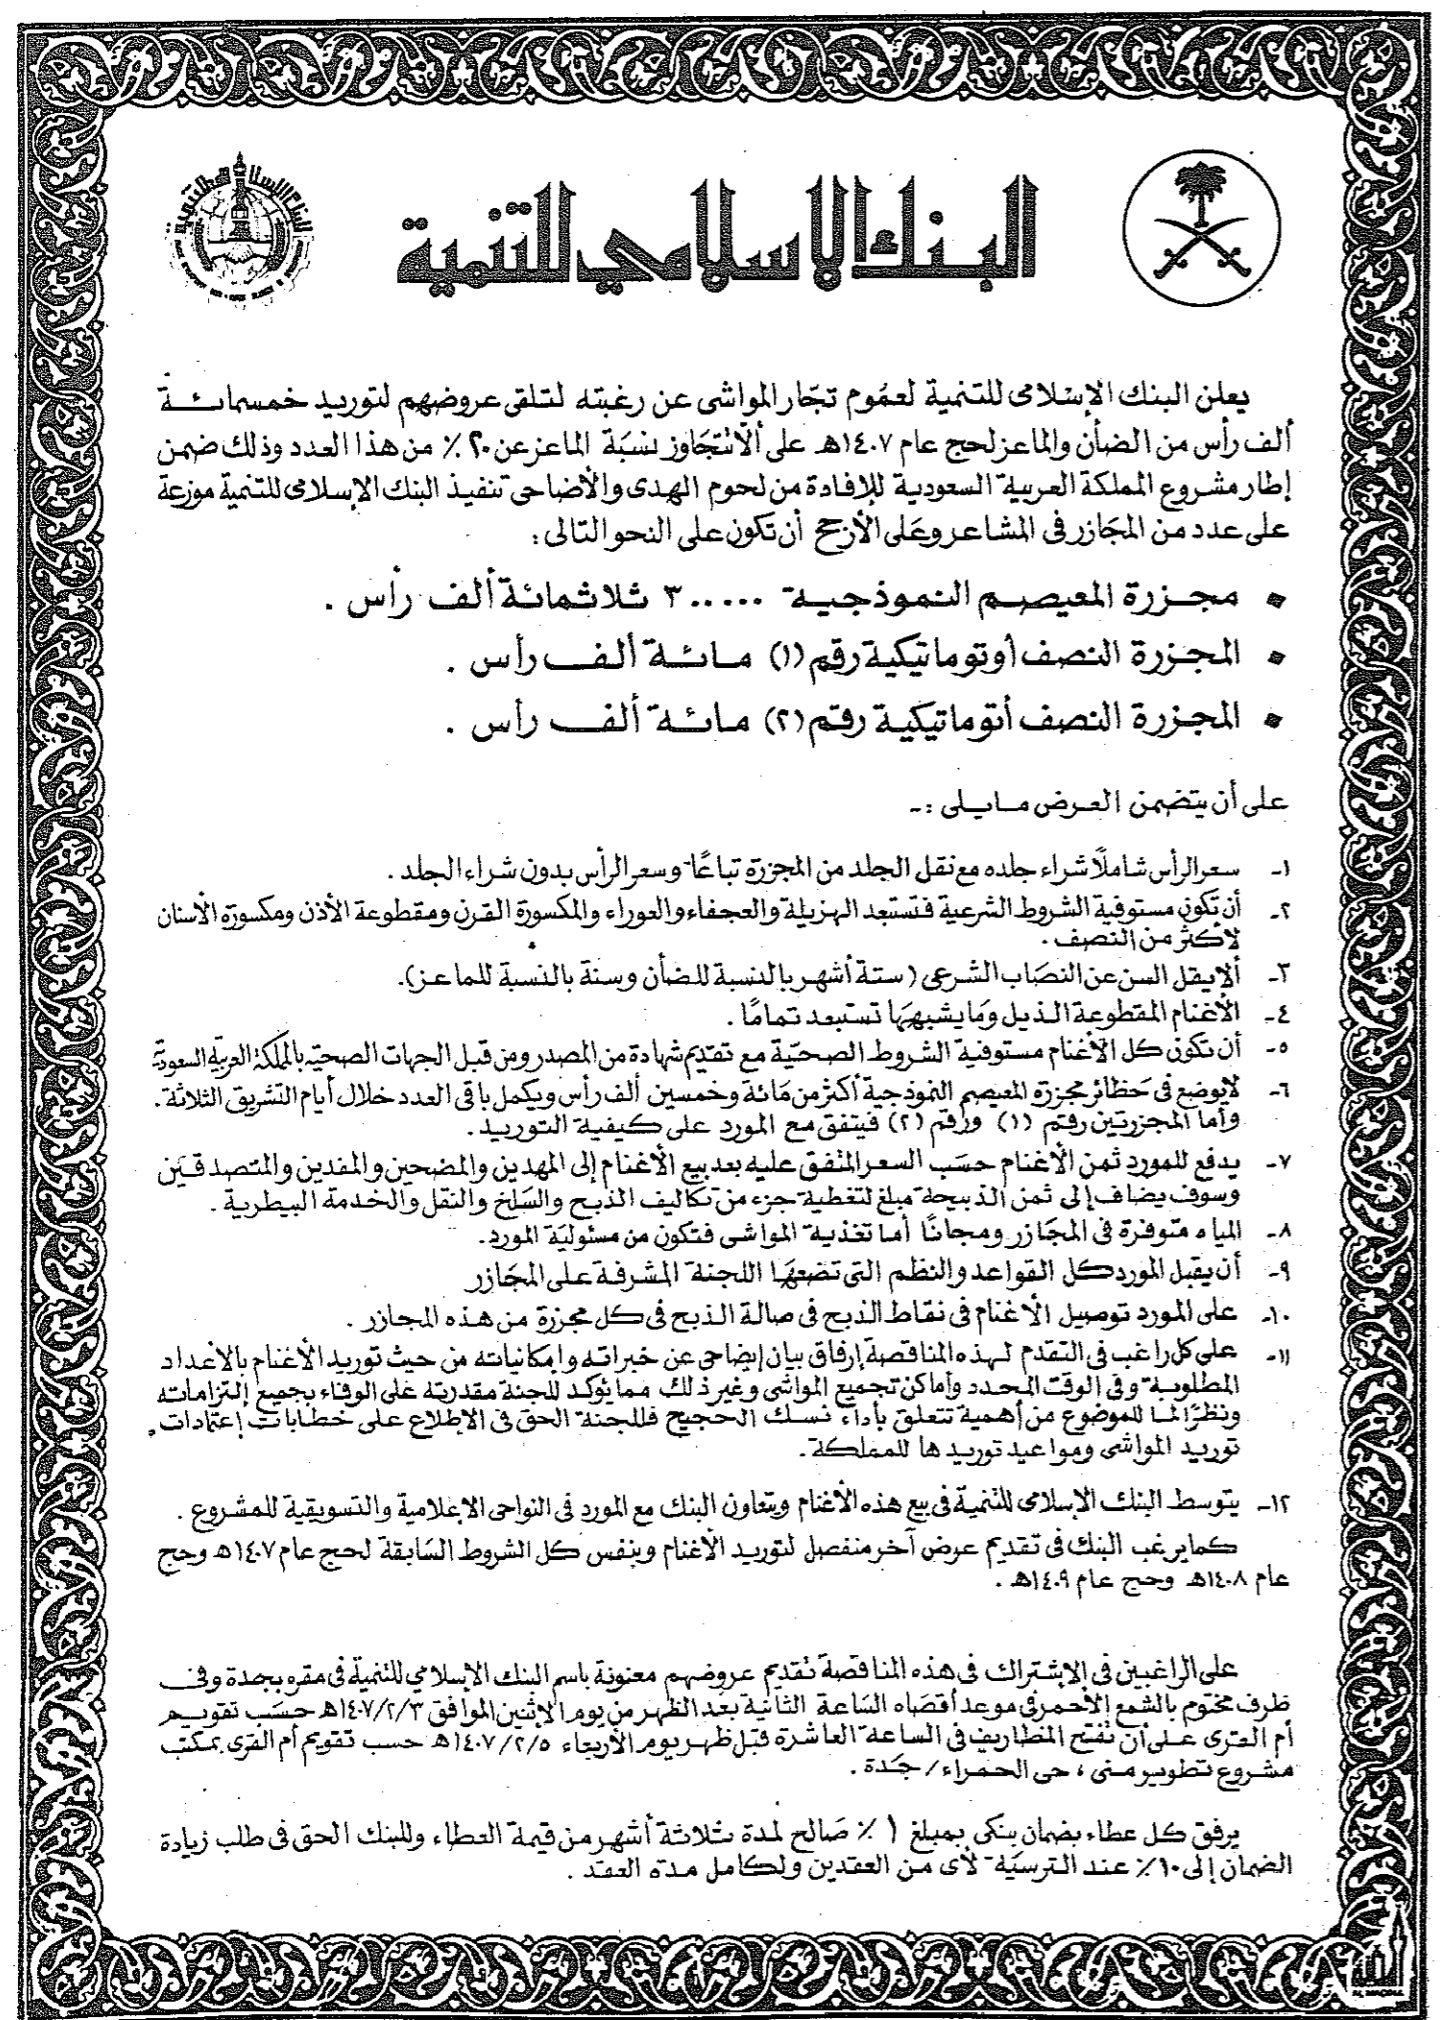 البنك الإسلامي للتنمية
يعلن البنك الإسلامى للتنمية لعموم تجار المواشى عن رغبته لتلقى عروضهم لتوريد خمسمائة
ألف رأس من الضأن والماعز لحج عام ١٤٠٧هـ على ألا تتجاوز نسبة الماعز عن ٢٠٪ من هذا العدد وذلك ضمن
إطار مشروع المملكة العربية السعودية للإفادة من لحوم الهدى والأضاحى تنفيذ البنك الإسلامى للتنمية موزعة
على عدد من المجازر فى المشاعر وعلى الأرجح أن تكون على النحو التالى :
• مجزرة المعيصم النموذجية ٣٠٠٠٠٠ ثلاثمائة ألف رأس .
• المجزرة النصف أوتوماتيكية رقم (١) مائة ألف رأس .
• المجزرة النصف أتوماتيكية رقم (٢) مائة ألف رأس .
على أن يتضمن العرض مايلى :ـ
١ـ سعر الرأس شاملاً شراء جلده مع نقل الجلد من المجزرة تباعًا وسعر الرأس بدون شراء الجلد .
٢ـ أن تكون مستوفية الشروط الشرعية فتستبعد الهزيلة والعجفاء والعوراء والمكسورة القرن ومقطوعة الأذن ومكسورة الأسنان
لأكثر من النصف .
٣ـ ألا يقل السن عن النصاب الشرعى (ستة أشهر بالنسبة للضأن وسنة بالنسبة للماعز).
٤ـ الأغنام المقطوعة الذيل وما يشبهها تستبعد تمامًا .
٥ـ أن تكون كل الأغنام مستوفية الشروط الصحية مع تقديم شهادة من المصدر ومن قبل الجهات الصحية بالمملكة العربية السعودية
٦ـ لا يوضع فى حظائر مجزرة المعيصم النموذجية أكثر من مائة وخمسين ألف رأس ويكمل باقى العدد خلال أيام التشريق الثلاثة .
وأما المجزرتين رقم (١) ورقم (٢) فيتفق مع المورد على كيفية التوريد .
٧ـ يدفع للمورد ثمن الأغنام حسب السعر المتفق عليه بعد بيع الأغنام إلى المهدين والمضحين والمفدين والمتصدقين
وسوف يضاف إلى ثمن الذبيحة مبلغ لتغطية جزء من تكاليف الذبح والسلخ والنقل والخدمة البيطرية .
٨ـ المياه متوفرة فى المجازر ومجانًا أما تغذية المواشى فتكون من مسئولية المورد.
٩ـ أن يقبل المورد كل القواعد والنظم التى تضعها اللجنة المشرفة على المجازر
١٠ـ على المورد توصيل الأغنام فى نقاط الذبح فى صالة الذبح فى كل مجزرة من هذه المجازر .
١١ـ على كل راغب فى التقدم لهذه المناقصة إرفاق بيان إيضاحى عن خبراته وإمكانياته من حيث توريد الأغنام بالأعداد
المطلوبة وفى الوقت المحدد وأماكن تجميع المواشى وغير ذلك مما يؤكد للجنة مقدرته على الوفاء بجميع إلتزاماته
ونظرًا لما للموضوع من أهمية تتعلق بأداء نسك الحجيج فللجنة الحق فى الإطلاع على خطابات إعتمادات
توريد المواشى ومواعيد توريدها للمملكة .
١٢ـ يتوسط البنك الإسلامى للتنمية فى بيع هذه الأغنام ويتعاون البنك مع المورد فى النواحى الإعلامية والتسويقية للمشروع .
كما يرغب البنك فى تقديم عرض آخر منفصل لتوريد الأغنام وبنفس كل الشروط السابقة لحج عام ١٤٠٧هـ وحج
عام ١٤٠٨هـ وحج عام ١٤٠٩هـ .
على الراغبين فى الإشتراك فى هذه المناقصة تقديم عروضهم معنونة باسم البنك الإسلامي للتنمية فى مقره بجدة وفى
ظرف مختوم بالشمع الأحمر فى موعد أقصاه الساعة الثانية بعد الظهر من يوم الإثنين الموافق ١٤٠٧/٢/٣هـ حسب تقويم
أم القرى على أن تفتح المظاريف فى الساعة العاشرة قبل ظهر يوم الأربعاء ١٤٠٧/٢/٥هـ حسب تقويم أم القرى بمكتب
مشروع تطوير منى ، حى الحمراء / جدة .
يرفق كل عطاء بضمان بنكى بمبلغ ١٪ صالح لمدة ثلاثة أشهر من قيمة العطاء وللبنك الحق فى طلب زيادة
الضمان إلى ١٠٪ عند الترسية لأى من العقدين ولكامل مدة العقد .